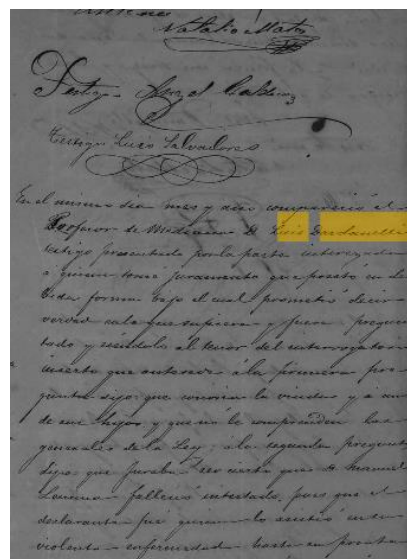 Natalio Mator
Testigo Angel Calderon
Testigo Luis Salvadores
En el mismo dia mes y año compareció el
Profesor de Medicina D. Luis Dardanelli
testigo presentado por la parte interesada
a quien tomé juramento que prestó en de
bida forma bajo el cual prometió decir
verdad en lo que supiera y fuere pregun
tado y siéndolo al tenor del interrogatorio
inserto que antecede á la primera pre
gunta dijo: que conocia la viuda y a
de sus hijos y que no le comprenden las
generales de la Ley; á la segunda pregunta
dijo: que juraba ser cierto que D. Manuel
falleció intestado, pues que el
declarante fue quien lo asistió en su
violenta enfermedad hasta su